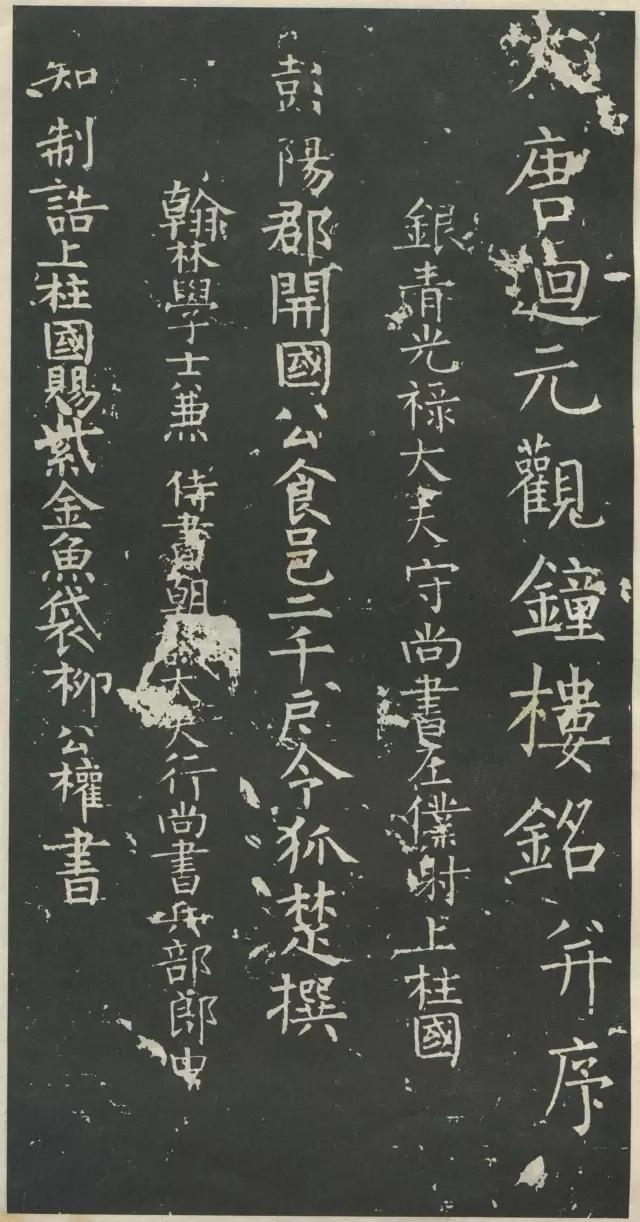 大唐迴元觀鐘樓銘并序
銀青光禄大夫守尚書左僕射上柱國
彭陽郡開國公食邑二千户令狐楚撰
翰林學士兼侍書朝議大夫行尚書兵部郎中
知制誥上柱國賜紫金魚袋柳公權書